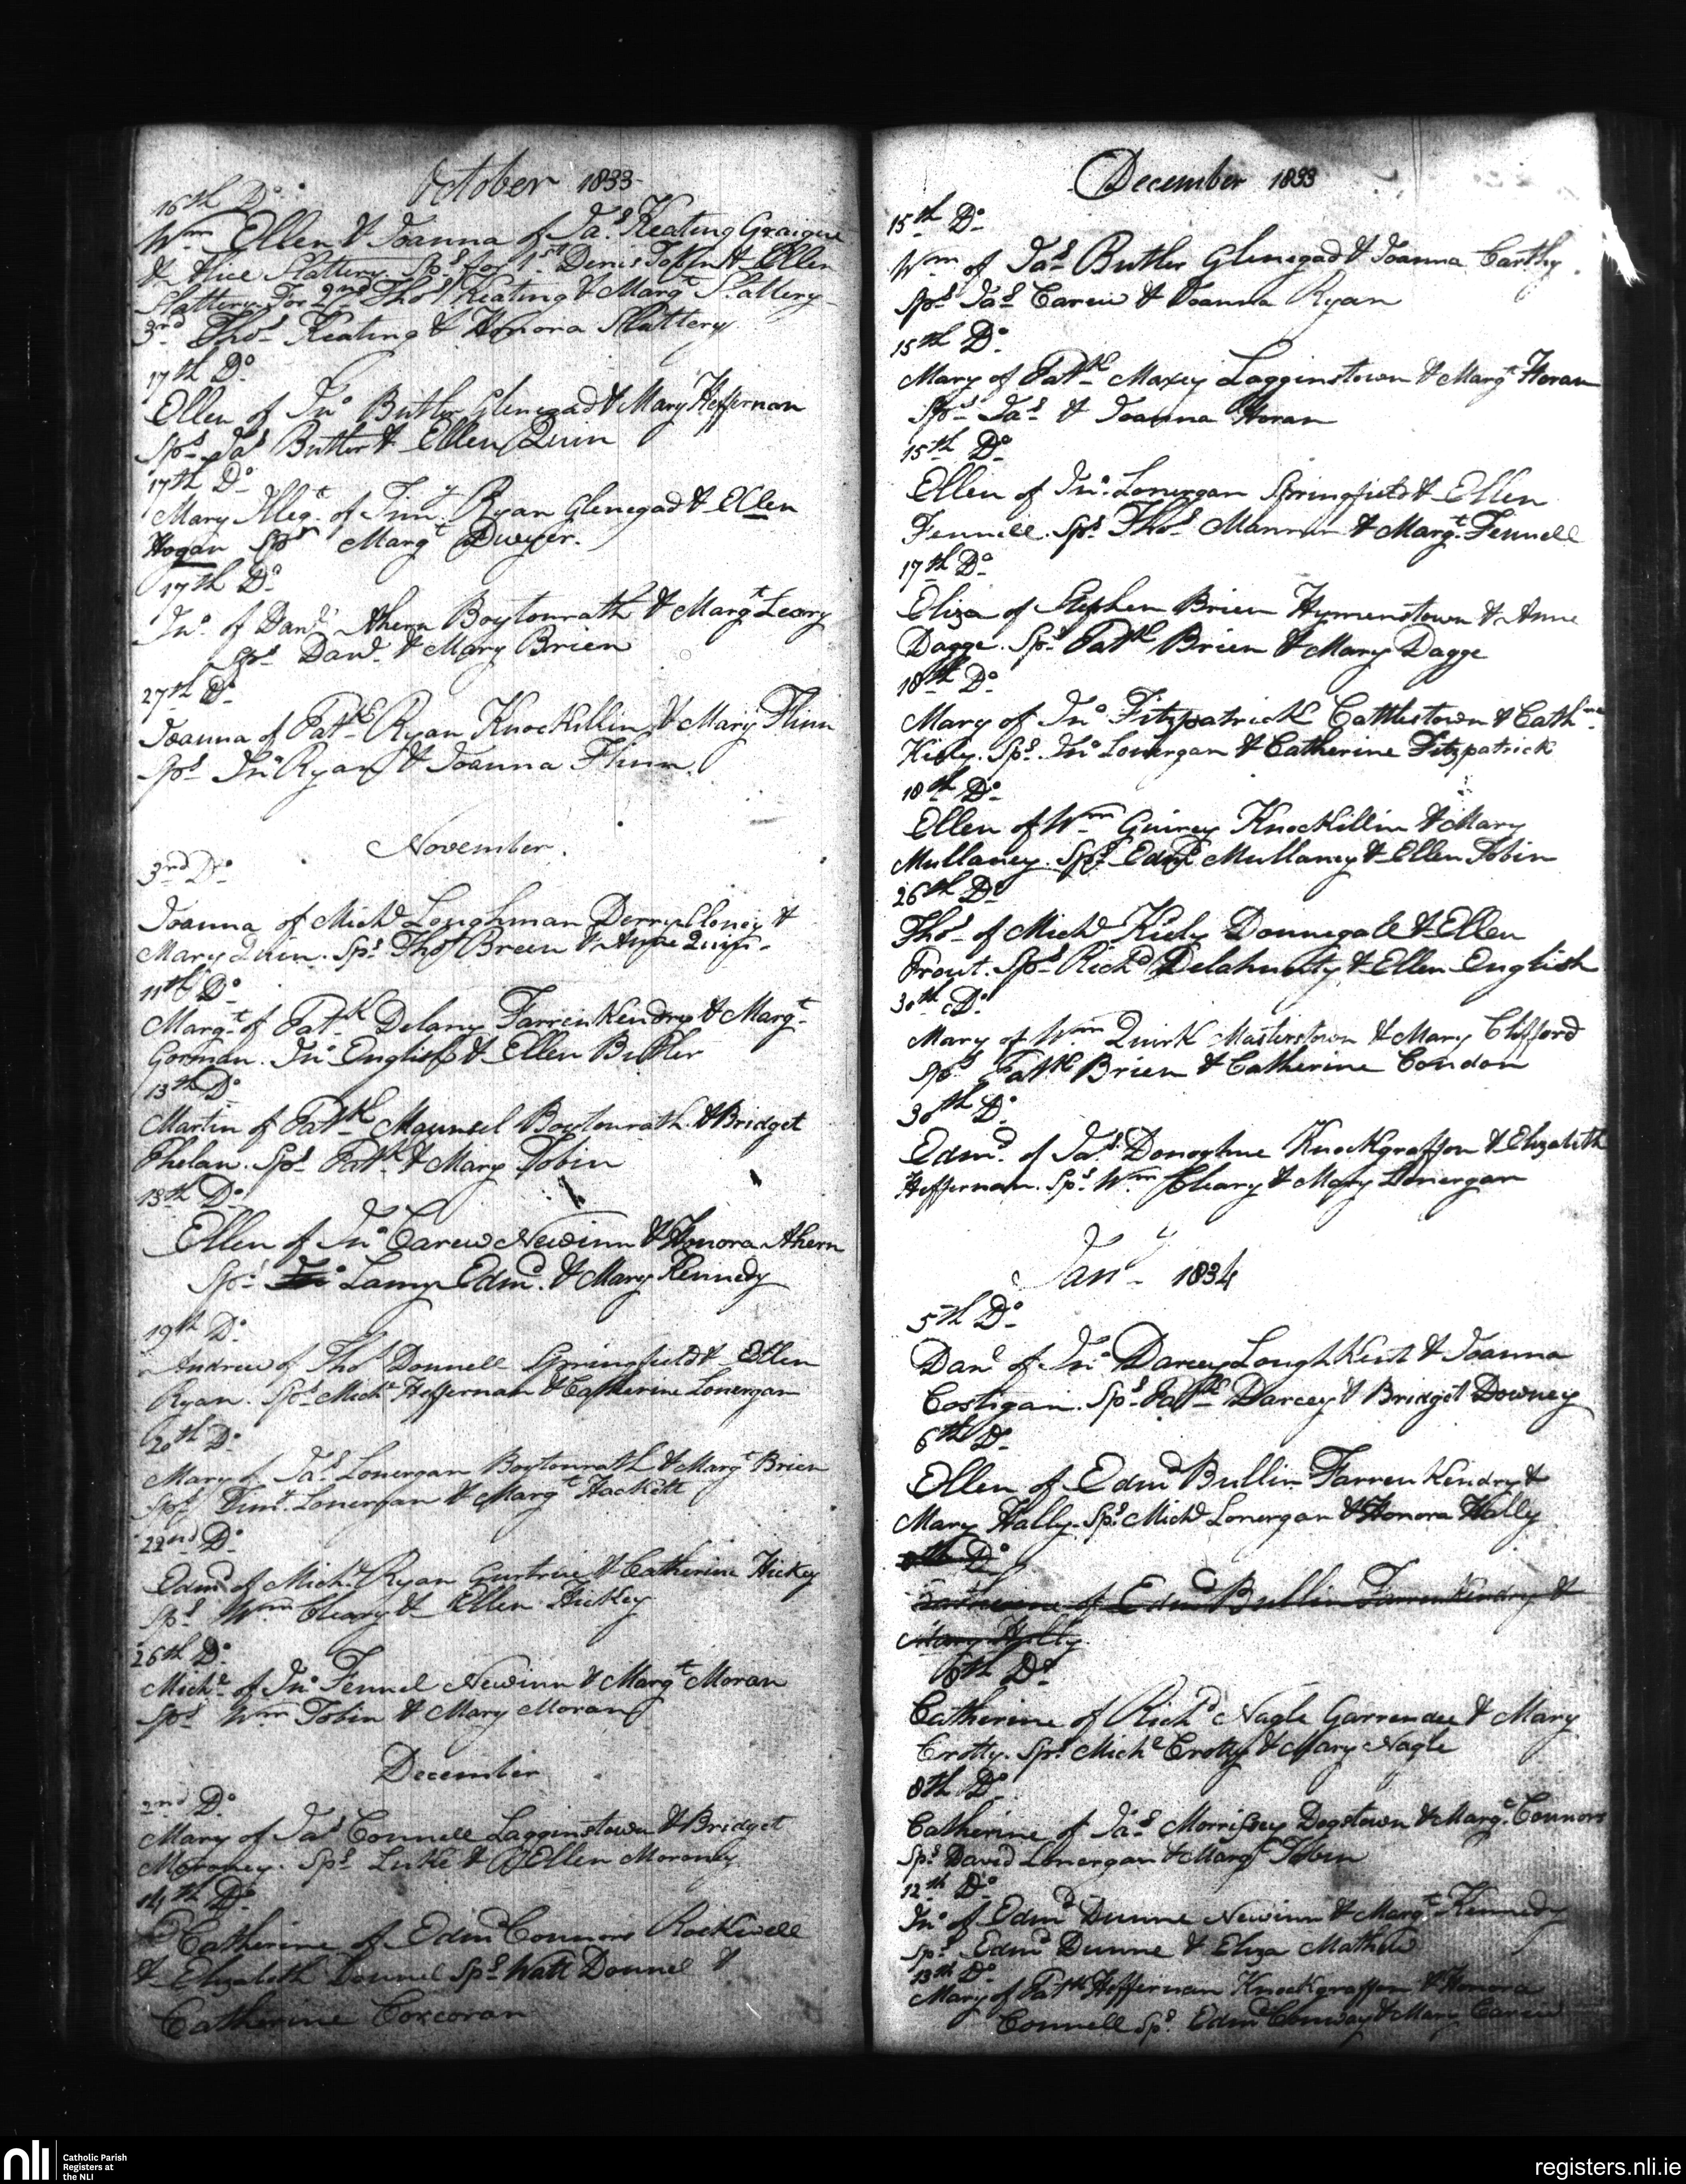 October 1833
16th Do
Wm Ellen & Joanna of Jas Keating Graigue
& Alice Slattery Sps for 1st Denis Tobin & Ellen
Slattery. For 2nd Thos Keating & Margt Slattery
3rd Thos Keating & Honora Slattery
17th Do
Ellen of Jno Butler Glenegad & Mary Heffernan
Sps Jas Butler & Ellen Quin
17th Do
Mary Illegt of Timy Ryan Glenegad & Ellen
Hogan Spr Margt Dwyer.
17th Do
Jno of Danl Ahern Boytonrath & Margt Leary
Sps Danl & Mary Brien
27th Do
Joanna of Patk Ryan Knockillin & Mary Flinn
Sps Jno Ryan & Joanna Flinn.
November.
3rd Do
Joanna of Michl Loughman Derry Cloney &
Mary Quin. Sps Thos Breen & Anne Quin.
11th Do
Margt of Patk Delany Farrinkendry & Margt
Gorman. Jno English & Ellen Butler
13th Do
Martin of Patk Maunsel Boytonrath & Bridget
Phelan. Sps Patk & Mary Tobin
13th Do
Ellen of Jno Carew Newinn & Honora Ahern
Sps Edmd & Mary Kennedy
19th Do
Andrew of Thos Donnell Springfield & Ellen
Ryan. Sps Michl Heffernan & Catherine Lonergan
20th Do
Mary of Jas Lonergan Boytonrath & Margt Brien
Sps Timy Lonergan & Margt Hackett
22nd Do
Edmd of Michl Ryan & Catherine Hickey
Sps Wm Cleary & Ellen Hickey
26th Do
Michl of Jno Fennel Newinn & Margt Moran
Sps Wm Tobin & Mary Moran
December
2nd Do
Mary of Jas Connell Lagginstown & Bridget
Moroney. Sps Luke & Ellen Moroney
14th Do
Catherine of Edmd Connors Rockwell
& Elizabeth Donnel Sps Watt Donnel &
Catherine Corcoran
December 1833
15th Do
Wm of Jas Butler Glenegad & Joanna Carthy
Sps Jas Carew & Joanna Ryan
15th Do
Mary of Patk Maxey Lagginstown & Margt Horan
Sps Jas & Joanna Horan
15th Do
Ellen of Jno Lonergan Springfield & Ellen
Fennell. Sps Thos & Margt Fennell
17th Do
Eliza of Stephen Brien Hymenstown & Anne
Dagge. Sps Patk Brien & Mary Dagge
18th Do
Mary of Jno Fitzpatrick Cattlestown & Cathne
Kiely. Sps Jno Lonergan & Catherine Fitzpatrick
18th Do
Ellen of Wm Guirey Knockillin & Mary
Mullaney. Sps Edmd Mullaney & Ellen Tobin
26th Do
Thos of Michl Kiely Donnegale & Ellen
Prout. Sps Richd Delahunty & Ellen English
30th Do
Mary of Wm Quirk Masterstown & Mary Clifford
Sps Patk Brien & Catherine Condon
30th Do
Edmd of Jas Donoghue Knockgraffon & Elizabeth
Heffernan. Sps Wm Cleary & Mary Lonergan
Jany 1834
5th Do
Danl of Jno Darcey Lough Kent & Joanna
Costigan. Sps Patk Darcey & Bridget Downey
6th Do
Ellen of Edmd Bullin Farrenkendry &
Mary Hally. Sps Michl Lonergan & Honora Hally
Do
Catherine of Edmd Bullin Farrenkendry &
Mary Hally
6th Do
Catherine of Richd Nagle Garrendee & Mary
Crotty. Sps Michl Crotty & Mary Nagle
8th Do
Catherine of Jas Morrissey Dogstown & Margt Connors
Sps David Lonergan & Margt Tobin
12th Do
Jno of Edmd Dunne Newinn & Margt Kennedy
Sps Edmd Dunne & Eliza Mathew
13th Do
Mary of Patk Heffernan Knockgraffon & Honora
Connell Sps Edmd Conway & Mary Carew
nli
Catholic Parish
Registers at
the NLI
registers.nli.ie